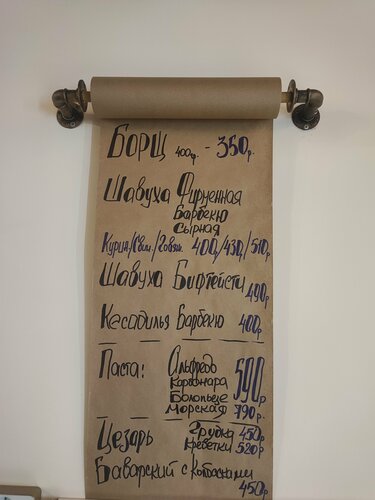 Борщ 400гр. - 350р.
Шавуха Фирменная
Барбекю
Сырная
Курин/Свин./Говяж. 400/430/510р
Шавуха Бифтейсти 490р
Кесадилья Барбекю 400р
Паста: Альфредо 590р
Карбонара
Болоньезе
Морская 790р.
Цезарь Грудка 450р
Креветки 520р
Баварский с колбасками
450р